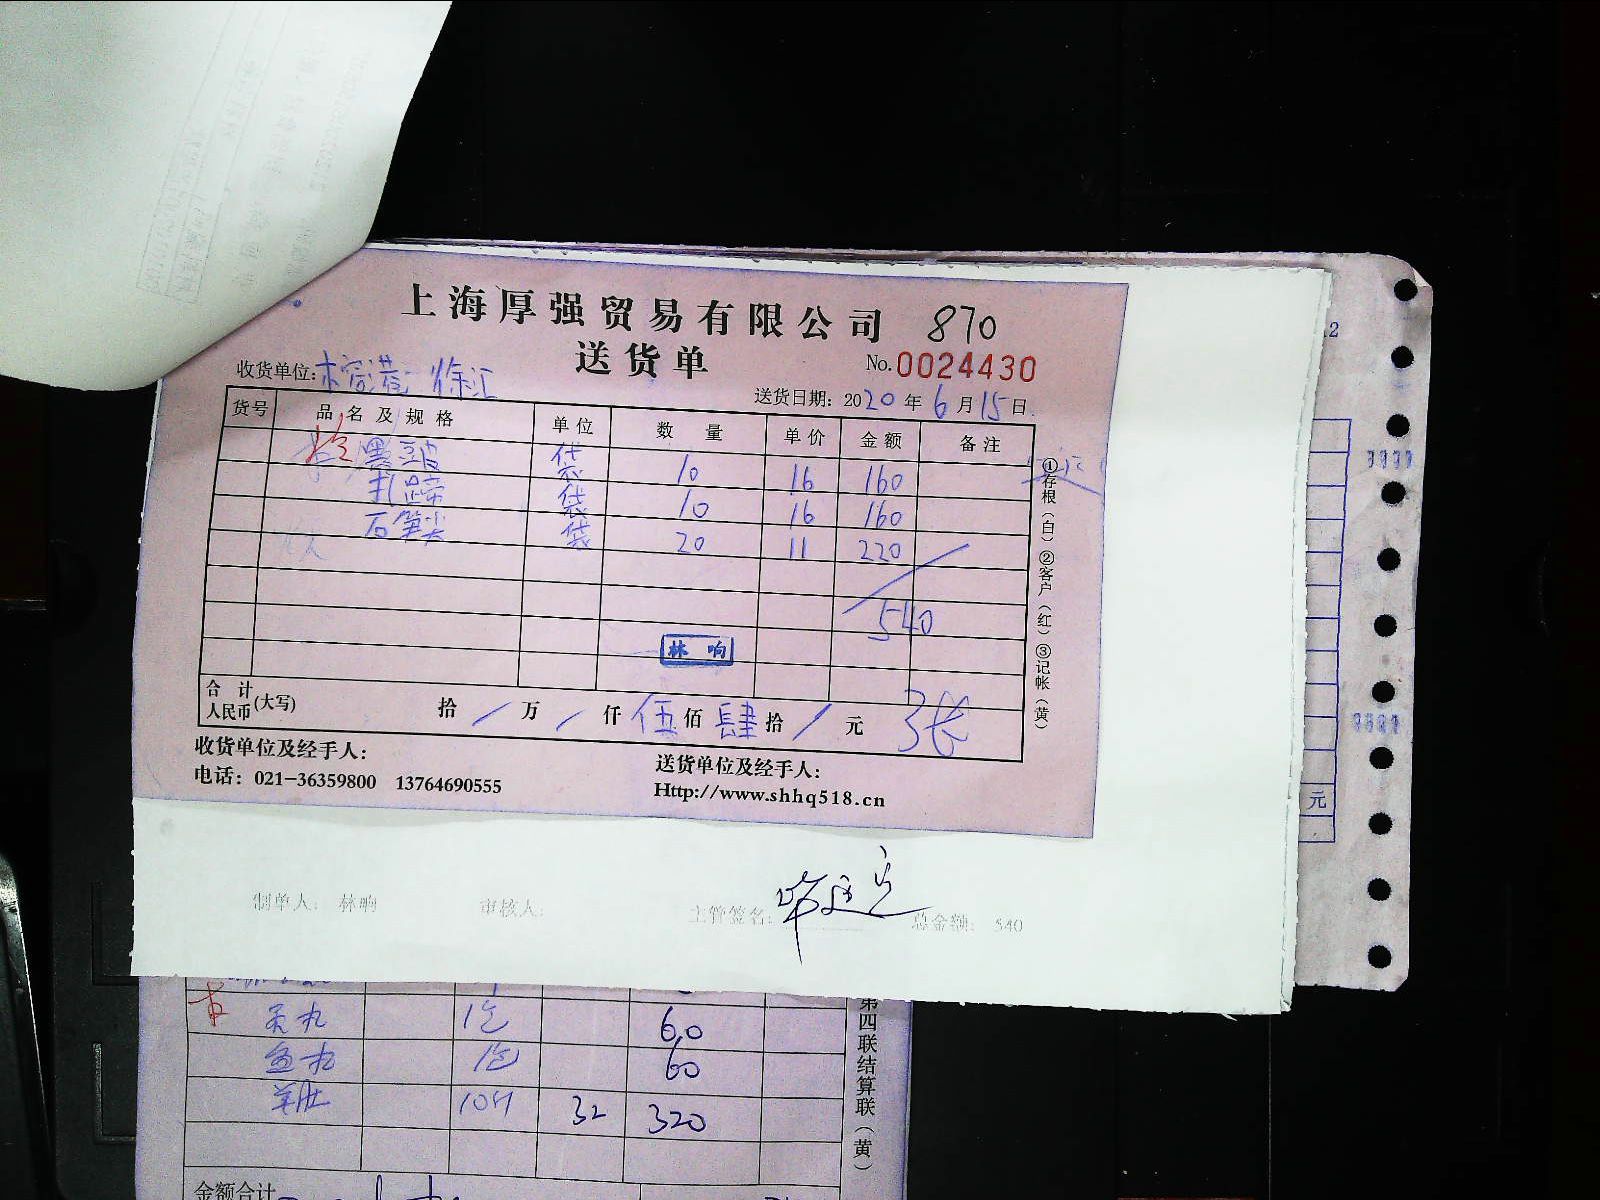 上海厚强贸易有限公司 870
送货单 No.0024430
收货单位: 徐汇 送货日期: 2020年6月15日
货号 品名及规格 单位 数量 单价 金额 备注
袋 10 16 160
袋 10 16 160
石笋尖 袋 20 11 220
540
林响
合计人民币(大写) 拾 / 万 / 仟 伍 佰 肆 拾 / 元 3张
收货单位及经手人: 送货单位及经手人:
电话: 021-36359800 13764690555 Http://www.shhq518.cn
①存根(白)②客户(红)③记帐(黄)
制单人: 林响 审核人: 主管签名: 总金额: 540
1包 60
鱼丸 1包 60
羊肚 10斤 32 320
金额合计
第四联结算联(黄)
元